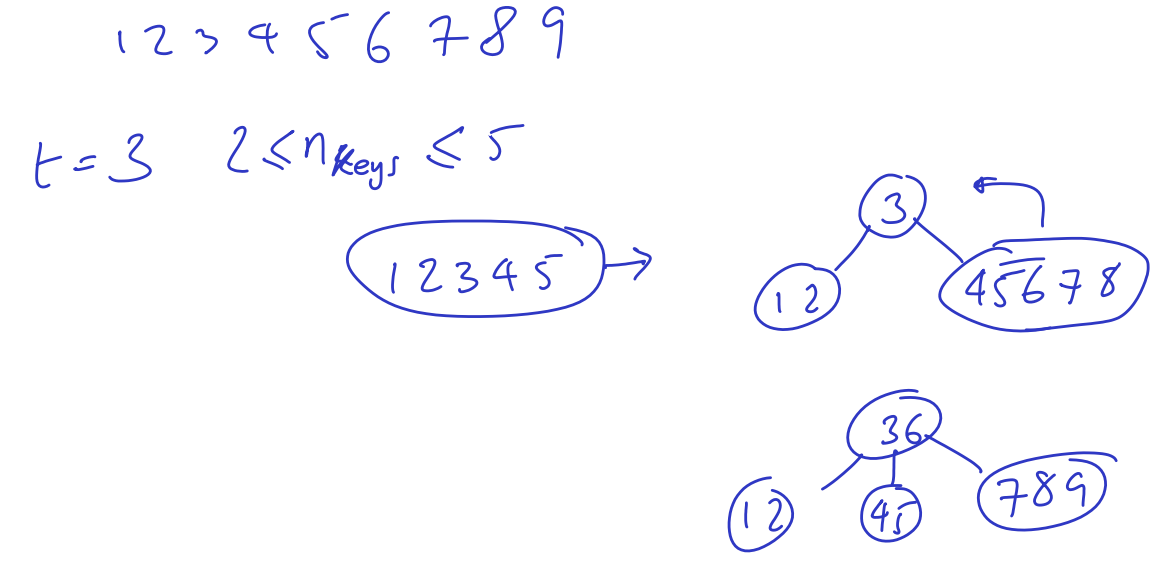 1 2 3 4 5 6 7 8 9
t = 3 2 ≤ nkeys ≤ 5
1 2 3 4 5
3
1 2
4 5 6 7 8
3 6
1 2
4 5
7 8 9